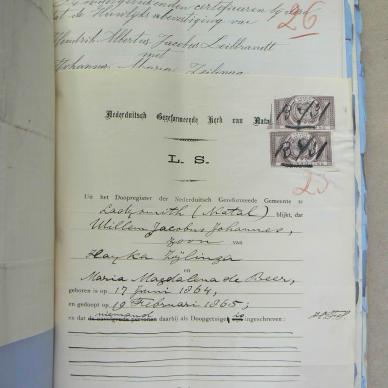 ondergeteekenden certificeeren bij deze
de Huwelijksbevestiging van
26
Hendrik Albertus Jacobus Leibbrandt
met
Johanna Maria Zeilinga
Nederduitsch Gereformeerde Kerk van Natal
L. S.
25
Uit het Doopregister der Nederduitsch Gereformeerde Gemeente te
Ladysmith (Natal) blijkt, dat
Willem Jacobus Johannes,
zoon van
Hayka Zijlinga
en
Maria Magdalena de Beer,
geboren is op 17 Juni 1864,
en gedoopt op 19 Februari 1865;
niemand
en dat de navolgende personen daarbij als Doopgetuigen is ingeschreven: